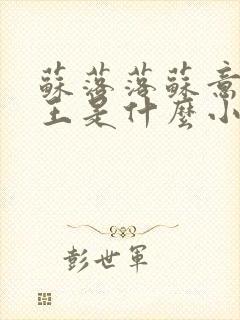 蘇落落蘇意
主是什麼小
彭世軍